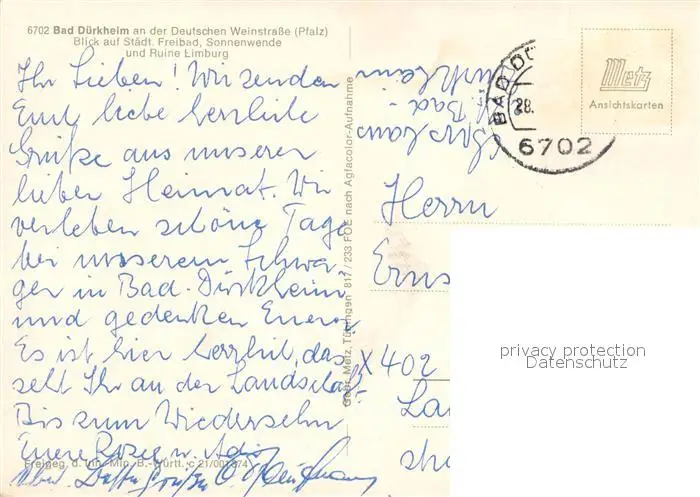 6702 Bad Dürkheim an der Deutschen Weinstraße (Pfalz)
Blick auf Städt. Freibad, Sonnenwende
und Ruine Limburg
Ihr Lieben! Wir senden
Euch liebe herzliche
Grüße aus unserer
lieben Heimat. Wir
verleben schöne Tage
bei unserem Schwa-
ger in Bad-Dürkheim
und gedenken Euer.
Es ist hier herrlich, das
seht Ihr an der Landschaft
Bis zum Wiedersehn
Eure
Freigeg. d. Inn. Min. B.-Württ.
Gebr. Metz, Tübingen 817/233 FOE nach Agfacolor-Aufnahme
Bad-
BAD DÜ
28.
6702
Metz
Ansichtskarten
Herrn
Erns
X402
La
privacy protection
Datenschutz